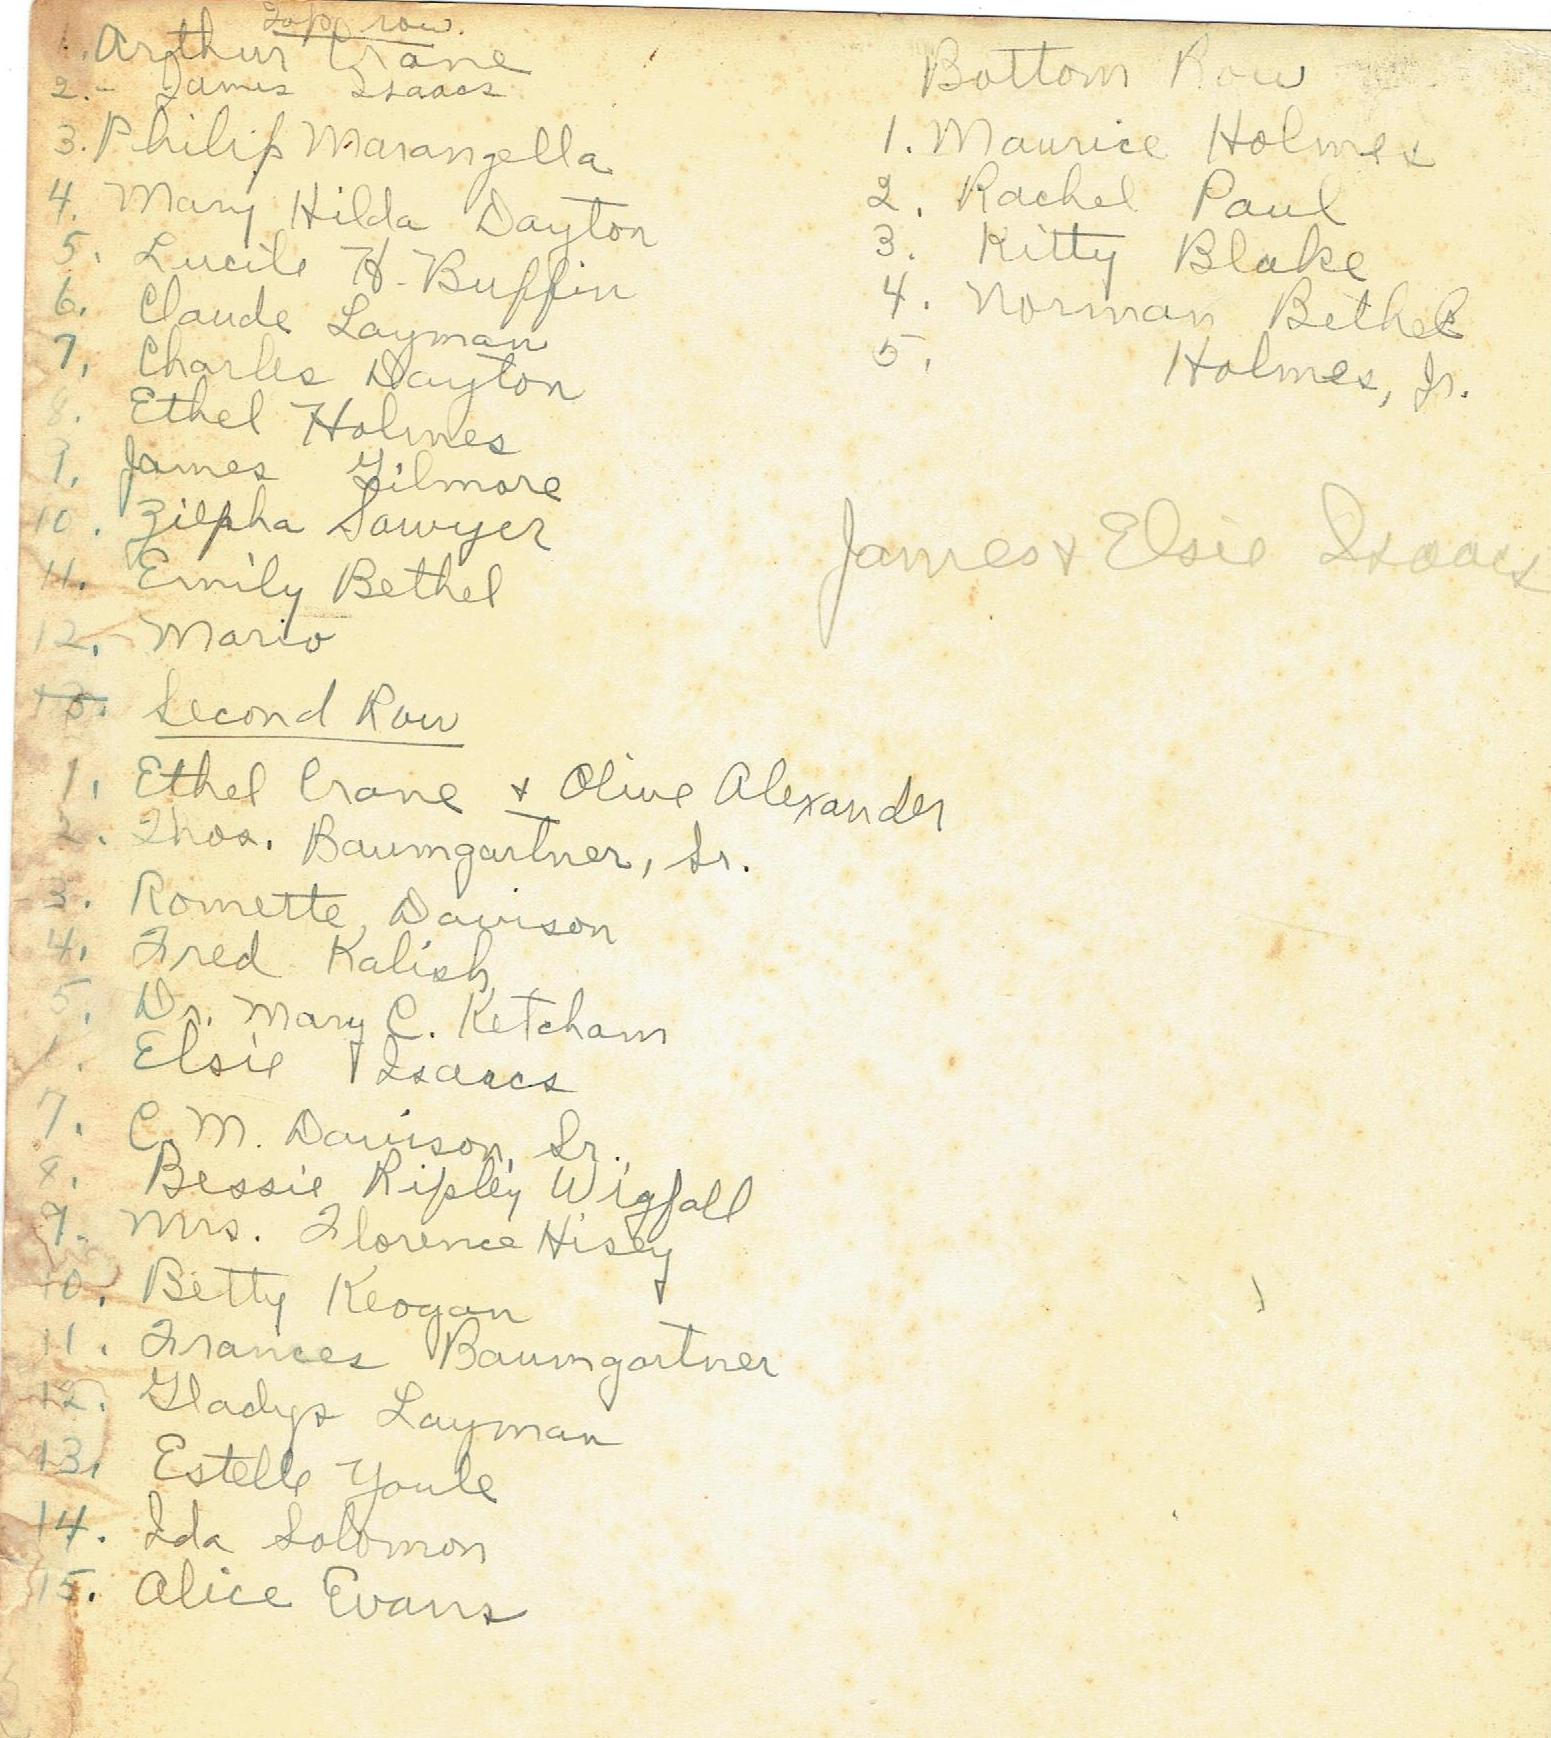 Top row
1. Arthur Crane
2. - James Isaacs
3. Philip Marangella
4. Mary Hilda Dayton
5. Lucile H. Buffin
6. Claude Layman
7. Charles Dayton
8. Ethel Holmes
9. James Gilmore
10. Zilpha Sawyer
11. Emily Bethel
12. Mario
13. Second Row
1. Ethel Crane & Olive Alexander
2. Thos. Baumgartner, Sr.
3. Romette Davison
4. Fred Kalish
5. Dr. Mary C. Ketcham
6. Elsie Isaacs
7. C. M. Davison, Sr.
8. Bessie Ripley Wigfall
9. Mrs. Florence Hisey
10. Betty Keogan
11. Frances Baumgartner
12. Gladys Layman
13. Estelle Youle
14. Ida Solomon
15. Alice Evans
Bottom Row
1. Maurice Holmes
2. Rachel Paul
3. Kitty Blake
4. Norman Bethel
5. Holmes, Jr.
James & Elsie Isaacs